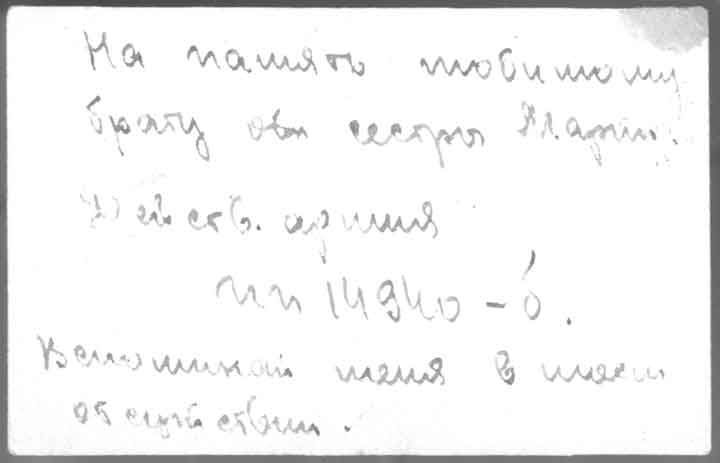 На память любимому
брату от сестры Марии.
Действ. армия
пп 14940-б.
Вспоминай меня в моем
отсуйствии.